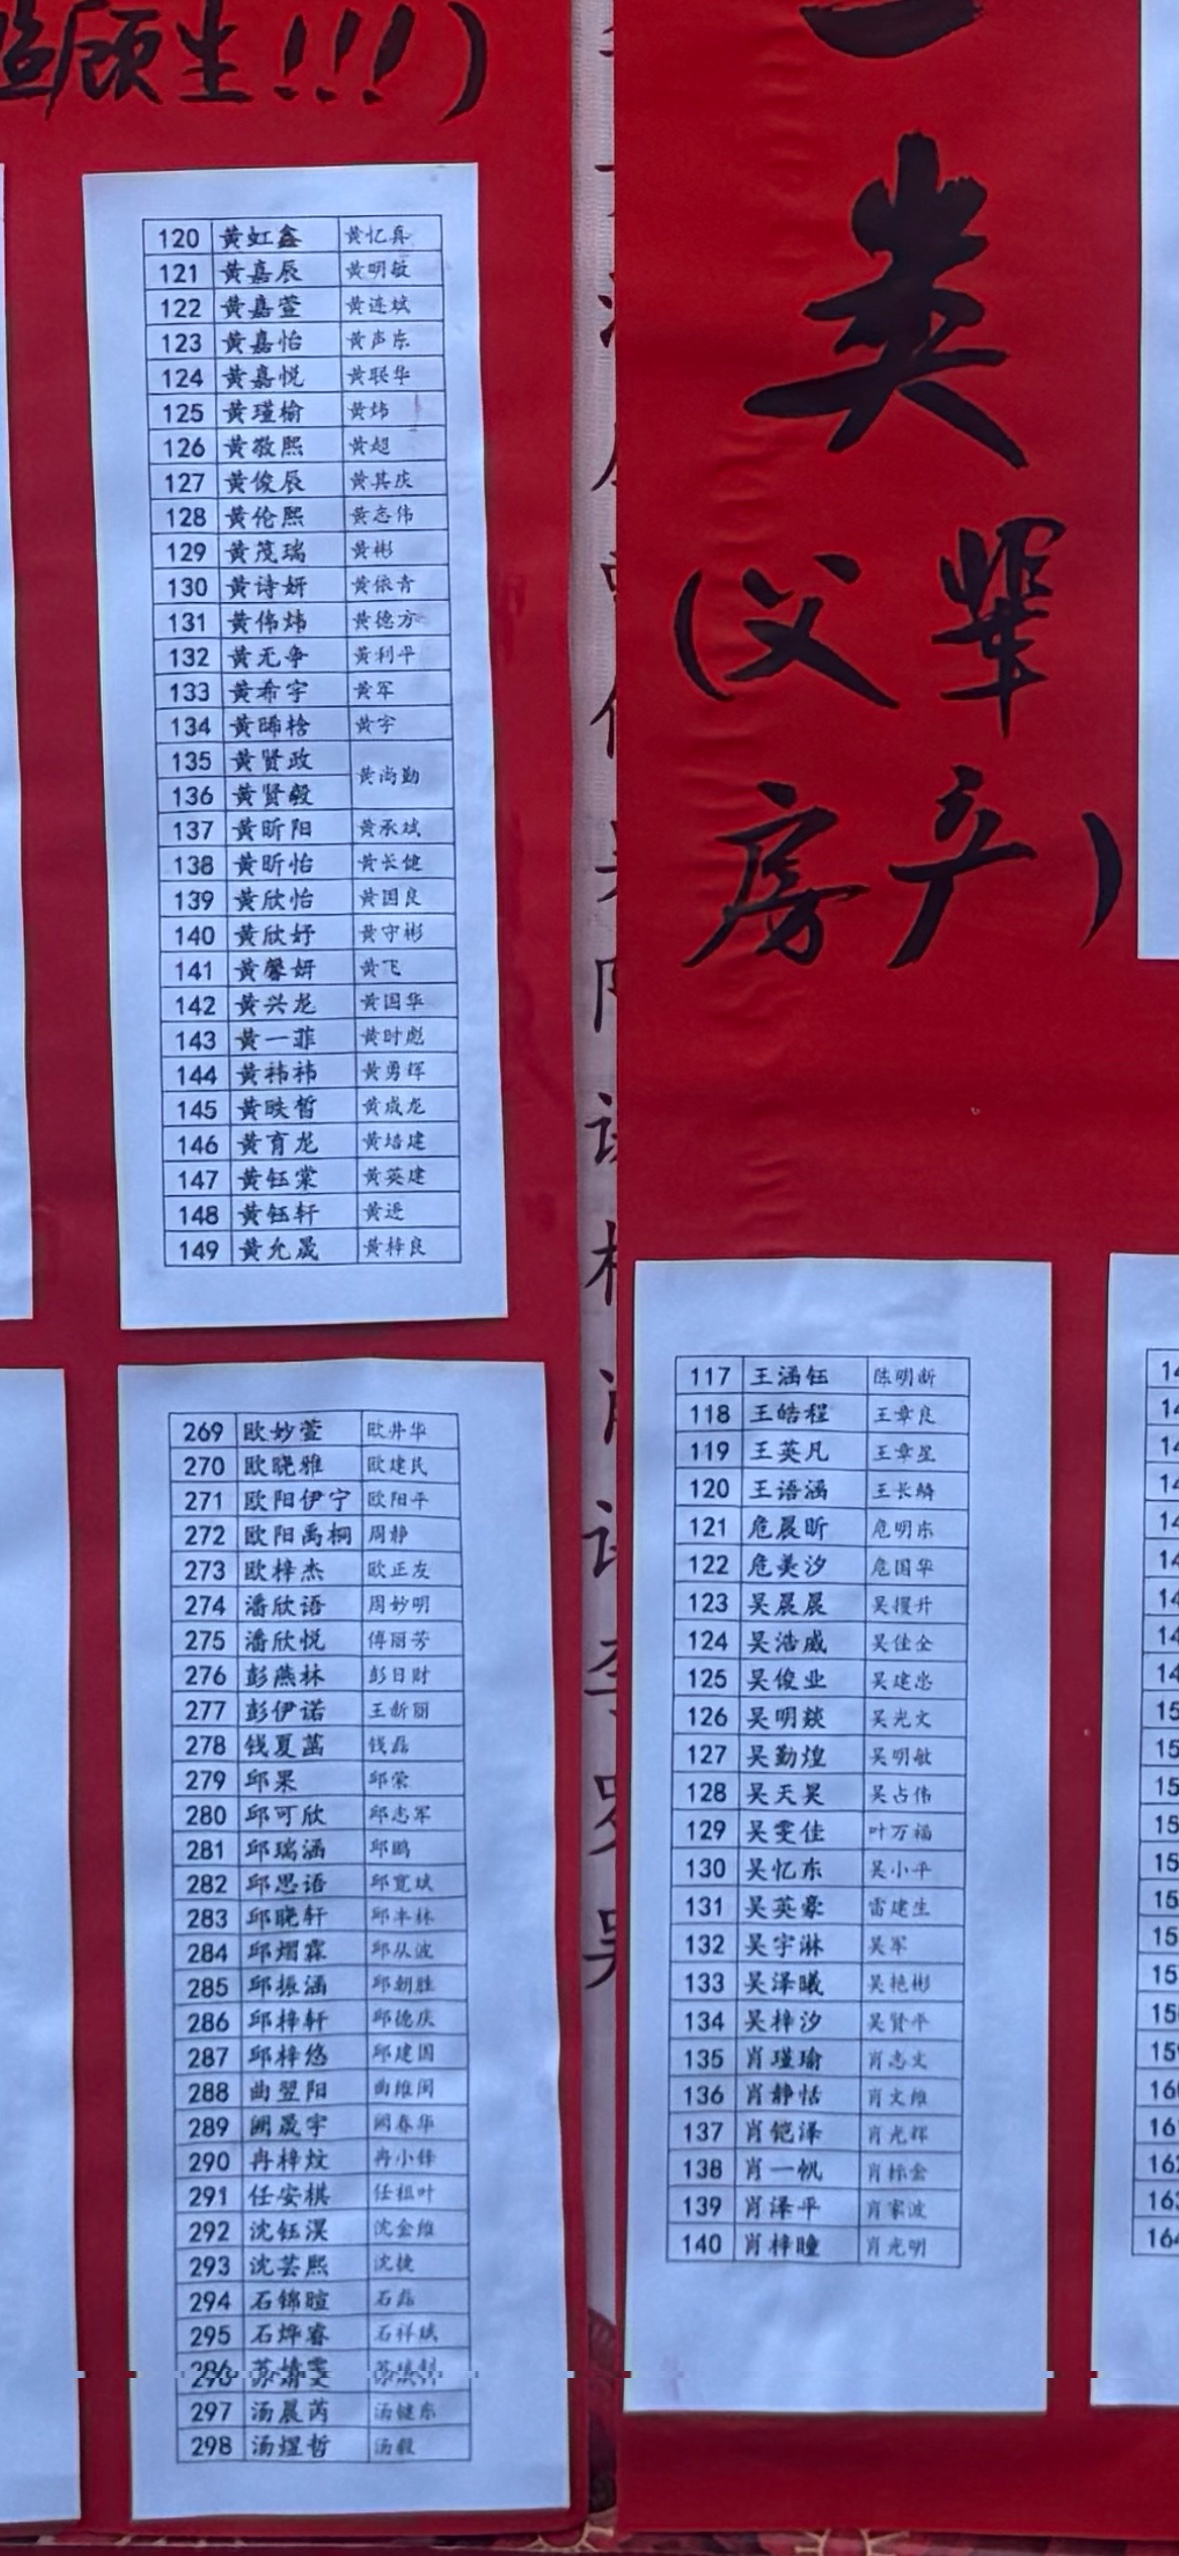 顾生!!!)
120 黄虹鑫 黄忆真
121 黄嘉辰 黄明敏
122 黄嘉萱 黄连斌
123 黄嘉怡 黄声东
124 黄嘉悦 黄联华
125 黄瑾榆 黄炜
126 黄敬熙 黄超
127 黄俊辰 黄其庆
128 黄伦熙 黄志伟
129 黄茂瑞 黄彬
130 黄诗妍 黄依青
131 黄伟炜 黄德方
132 黄无争 黄利平
133 黄希宇 黄军
134 黄晞 黄宇
135 黄贤政 黄尚勤
136 黄贤毅
137 黄昕阳 黄承斌
138 黄昕怡 黄长健
139 黄欣怡 黄国良
140 黄欣妤 黄守彬
141 黄馨妍 黄飞
142 黄兴龙 黄国华
143 黄一菲 黄时彪
144 黄祎祎 黄勇辉
145 黄昳皙 黄成龙
146 黄育龙 黄培建
147 黄钰棠 黄英建
148 黄钰轩 黄进
149 黄允晟 黄梓良
269 欧妙萱 欧井华
270 欧晓雅 欧建民
271 欧阳伊宁 欧阳平
272 欧阳禹桐 周静
273 欧梓杰 欧正友
274 潘欣语 周妙明
275 潘欣悦 傅丽芳
276 彭燕林 彭日财
277 彭伊诺 王新丽
278 钱夏菡 钱磊
279 邱果 邱荣
280 邱可欣 邱志军
281 邱瑞涵 邱鹏
282 邱思语 邱宽斌
283 邱晓轩 邱丰林
284 邱熠霖 邱从波
285 邱振涵 邱朝胜
286 邱梓轩 邱德庆
287 邱梓悠 邱建国
288 曲翌阳 曲维闯
289 阙晟宇 阙春华
290 冉梓炆 冉小锋
291 任安棋 任祖叶
292 沈钰淏 沈金维
293 沈芸熙 沈捷
294 石锦暄 石磊
295 石烨睿 石祥斌
296 苏婧雯
297 汤晨芮 汤健东
298 汤煜哲 汤毅
一
类
(父辈
房产)
117 王涵钰 陈明新
118 王皓程 王章良
119 王英凡 王章星
120 王语涵 王长麟
121 危晨昕 危明东
122 危美汐 危国华
123 吴晨晨 吴提升
124 吴浩威 吴佳全
125 吴俊业 吴建忠
126 吴明燚 吴光文
127 吴勤煌 吴明敏
128 吴天昊 吴占伟
129 吴雯佳 叶万福
130 吴忆东 吴小平
131 吴英豪 雷建生
132 吴宇淋 吴军
133 吴泽曦 吴艳彬
134 吴梓汐 吴贤平
135 肖瑾瑜 肖志文
136 肖静恬 肖文维
137 肖铠泽 肖光辉
138 肖一帆 肖标金
139 肖泽平 肖家波
140 肖梓瞳 肖光明